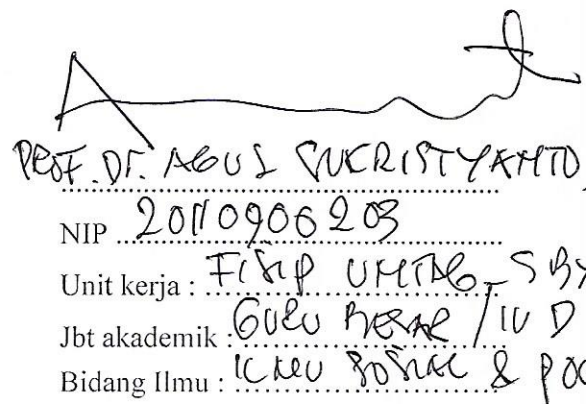 PROF. DR. AGUS SUKRISTYANTO,
NIP 20110906203
Unit kerja : FISIP UNTAG SBY
Jbt akademik : GURU BESAR / IV D
Bidang Ilmu : ILMU SOSIAL &